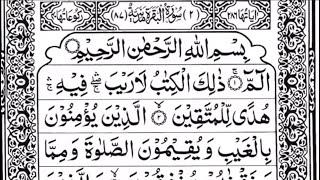 اٰیاتها ٢٨٦ (٢) سُوْرَةُ الْبَقَرَةِ مَدَنِيَّةٌ (٨٧) رکوعاتها
بِسْمِ اللّٰهِ الرَّحْمٰنِ الرَّحِيْمِ
الٓمّٓ ۚ ١ ذٰلِكَ الْكِتٰبُ لَا رَيْبَ ۛ فِيْهِ ۛ
هُدًى لِّلْمُتَّقِيْنَ ۙ ٢ الَّذِيْنَ يُؤْمِنُوْنَ
بِالْغَيْبِ وَيُقِيْمُوْنَ الصَّلٰوةَ وَمِمَّا